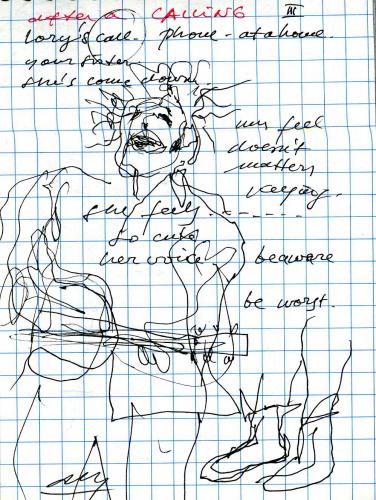 after a CALLING III
Lory's call. phone - at a home.
your sister
she's come down.
my feel
doesn't
matters
keeping.
she feels
so cute
her voice
beaware
be worst.